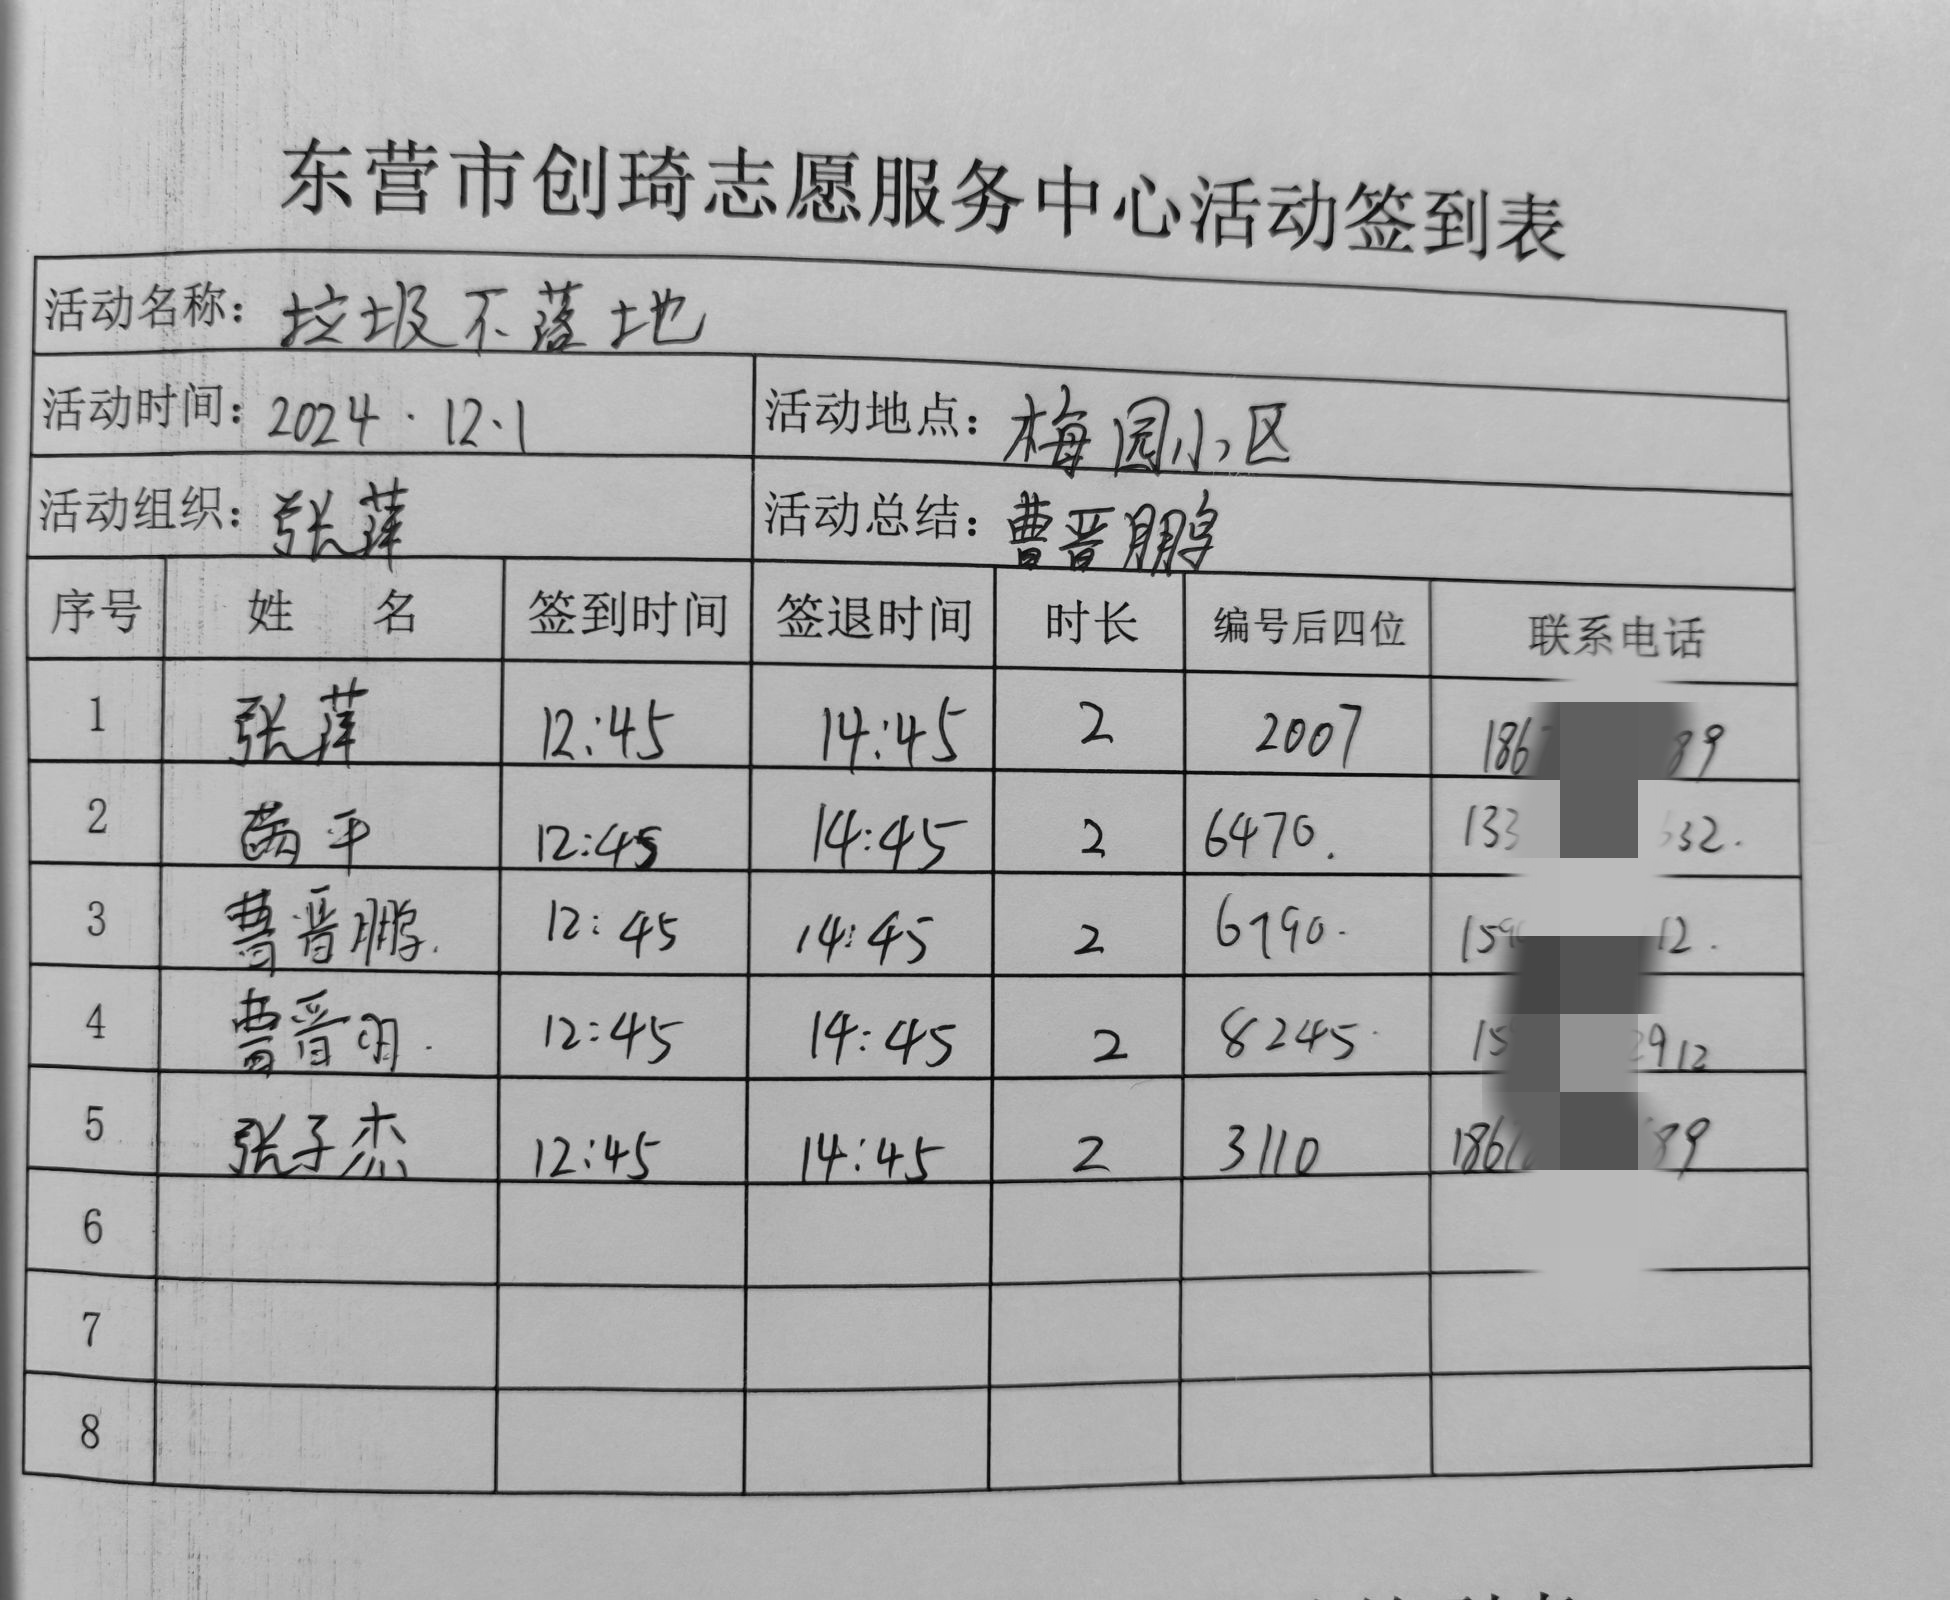 东营市创琦志愿服务中心活动签到表
活动名称：垃圾不落地
活动时间：2024.12.1 活动地点：梅园小区
活动组织：张萍 活动总结：曹晋鹏
序号 姓 名 签到时间 签退时间 时长 编号后四位 联系电话
1 张萍 12:45 14:45 2 2007 186 89
2 平 12:45 14:45 2 6470. 133 32.
3 曹晋鹏. 12:45 14:45 2 6790. 159 12.
4 曹晋明. 12:45 14:45 2 8245. 15 2912
5 张子杰 12:45 14:45 2 3110 186 89
6
7
8